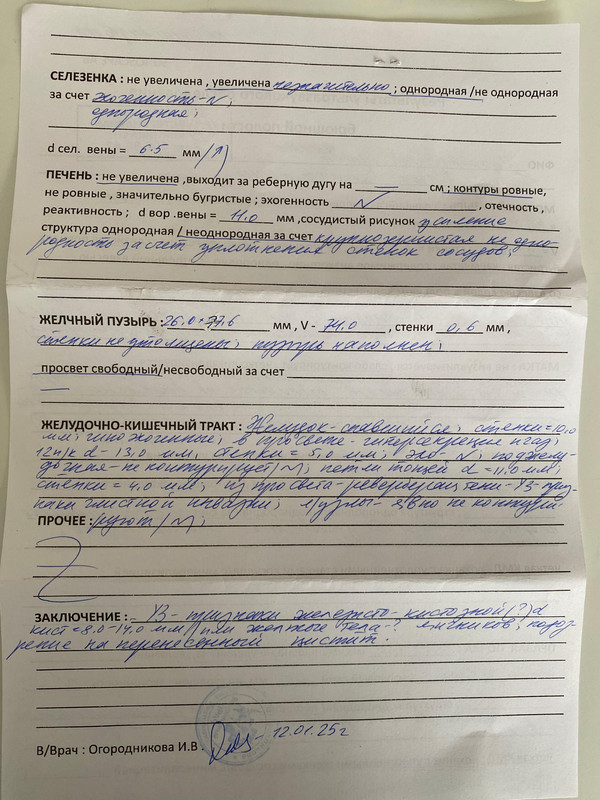 СЕЛЕЗЕНКА : не увеличена , увеличена незначительно ; однородная /не однородная
за счет эхогенность - N ;
однородная ;
d сел. вены = 6.5 мм /↑)
ПЕЧЕНЬ : не увеличена ,выходит за реберную дугу на — см ; контуры ровные,
не ровные , значительно бугристые ; эхогенность N , отечность ,
реактивность ; d вор .вены = 11.0 мм ,сосудистый рисунок усиление
структура однородная / неоднородная за счет крупнозернистая не одно-
родность за счет уплотнения стенок сосудов ;
ЖЕЛЧНЫЙ ПУЗЫРЬ : 26.0 37.6 мм , V - 74.0 , стенки 0,6 мм ,
стенки не утолщены ; пузырь наполнен ;
просвет свободный/несвободный за счет
—
ЖЕЛУДОЧНО-КИШЕЧНЫЙ ТРАКТ : Желудок - спавшийся ; стенки = 10,0
мм ; гипоэхогенные ; в просвете - гиперсекреция и газ ;
12п/к d - 13.0 мм, стенки = 5,0 мм ; эхо - N ; поджелу-
дочная - не контурирует /N/ ; петли тонкой d = 11,0 мм ;
стенки = 4.0 мм ; из просвета - реверберац. тени - УЗ - приз-
наки глистной инвазии ; л/узлы - явно не контури-
ПРОЧЕЕ : руют /N/ ;
ЗАКЛЮЧЕНИЕ : УЗ - признаки железисто - кистозной (?) d
кист = 8.0 - 14.0 мм или желтые тела - ? яичников ; подоз-
рение на перенесенный цистит .
В/Врач : Огородникова И.В . 12.01.25г